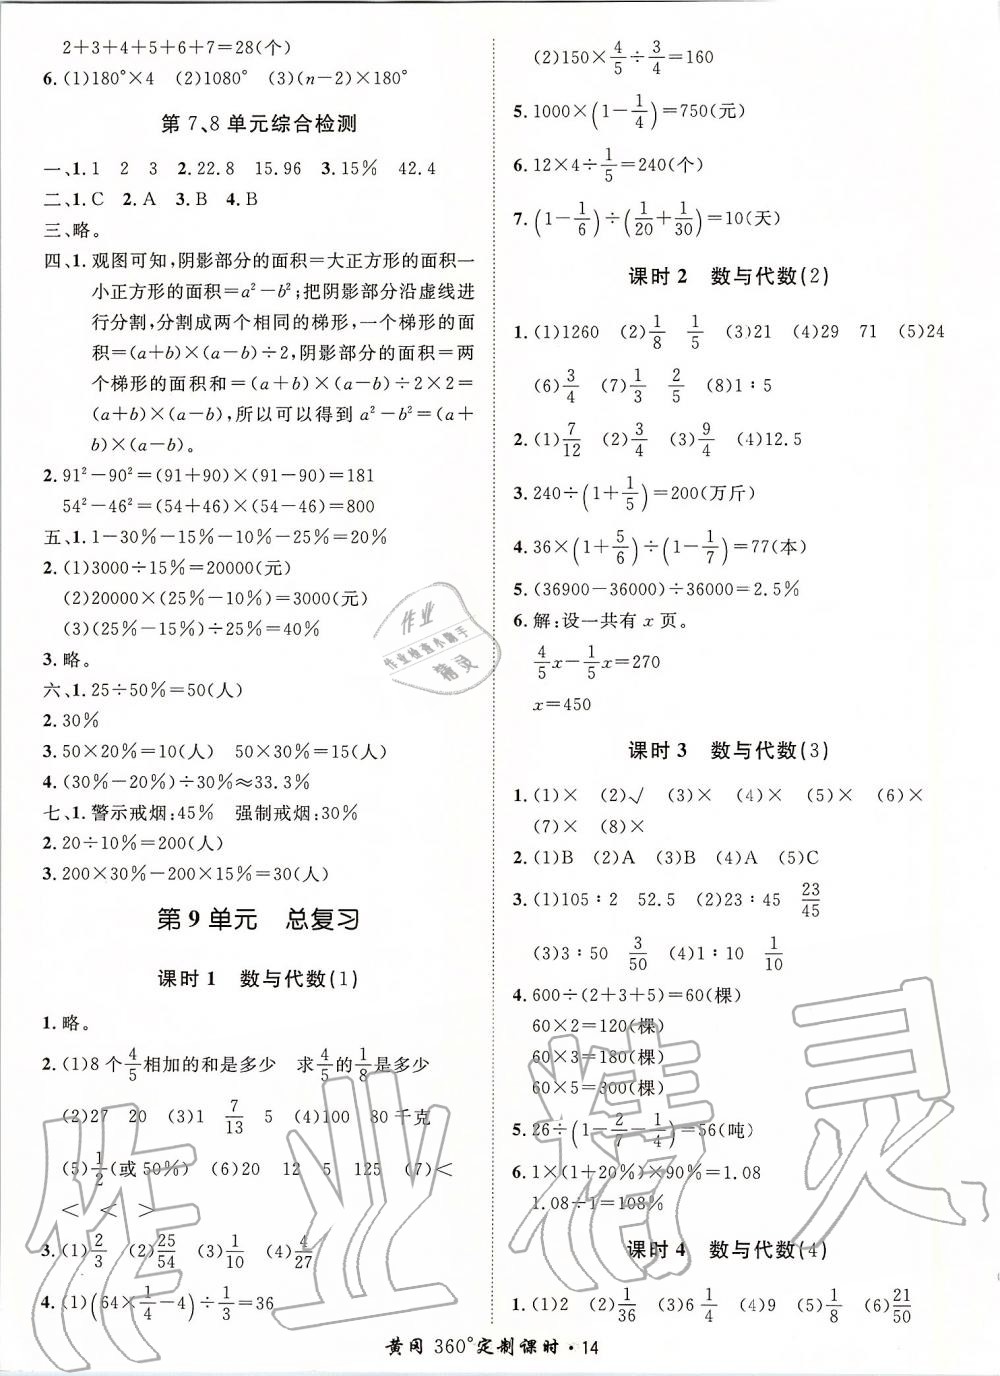 2+3+4+5+6+7=28(个)
6. (1)180°×4 (2)1080° (3)(n-2)×180°
第7、8单元综合检测
一、1. 1 2 3 2. 22.8 15.96 3. 15% 42.4
二、1. C 2. A 3. B 4. B
三、略。
四、1. 观图可知,阴影部分的面积=大正方形的面积一
小正方形的面积=a²-b²;把阴影部分沿虚线进
行分割,分割成两个相同的梯形,一个梯形的面
积=(a+b)×(a-b)÷2,阴影部分的面积=两
个梯形的面积和=(a+b)×(a-b)÷2×2=
(a+b)×(a-b),所以可以得到 a²-b²=(a+
b)×(a-b)。
2. 91²-90²=(91+90)×(91-90)=181
54²-46²=(54+46)×(54-46)=800
五、1. 1-30%-15%-10%-25%=20%
2. (1)3000÷15%=20000(元)
(2)20000×(25%-10%)=3000(元)
(3)(25%-15%)÷25%=40%
3. 略。
六、1. 25÷50%=50(人)
2. 30%
3. 50×20%=10(人) 50×30%=15(人)
4. (30%-20%)÷30%≈33.3%
七、1. 警示戒烟:45% 强制戒烟:30%
2. 20÷10%=200(人)
3. 200×30%-200×15%=30(人)
第9单元 总复习
课时1 数与代数(1)
1. 略。
2. (1)8个4/5相加的和是多少 求4/5的1/8是多少
(2)27 20 (3)1 7/13 5 (4)100 80千克
(5)1/2(或50%) (6)20 12 5 125 (7)<
< < >
3. (1)2/3 (2)25/54 (3)1/10 (4)4/27
4. (1)(64×1/4-4)÷1/3=36
(2)150×4/5÷3/4=160
5. 1000×(1-1/4)=750(元)
6. 12×4÷1/5=240(个)
7. (1-1/6)÷(1/20+1/30)=10(天)
课时2 数与代数(2)
1. (1)1260 (2)1/8 1/5 (3)21 (4)29 71 (5)24
(6)3/4 (7)1/3 2/5 (8)1∶5
2. (1)7/12 (2)3/4 (3)9/4 (4)12.5
3. 240÷(1+1/5)=200(万斤)
4. 36×(1+5/6)÷(1-1/7)=77(本)
5. (36900-36000)÷36000=2.5%
6. 解:设一共有 x 页。
4/5x-1/5x=270
x=450
课时3 数与代数(3)
1. (1)× (2)√ (3)× (4)× (5)× (6)×
(7)× (8)×
2. (1)B (2)A (3)B (4)A (5)C
3. (1)105∶2 52.5 (2)23∶45 23/45
(3)3∶50 3/50 (4)1∶10 1/10
4. 600÷(2+3+5)=60(棵)
60×2=120(棵)
60×3=180(棵)
60×5=300(棵)
5. 26÷(1-2/7-1/4)=56(吨)
6. 1×(1+20%)×90%=1.08
1.08÷1=108%
课时4 数与代数(4)
1. (1)2 (2)1/36 (3)6 1/4 (4)9 (5)8 (6)21/50
黄冈 360°定制课时·14
作业
作业检查小助手
精灵
作业精灵